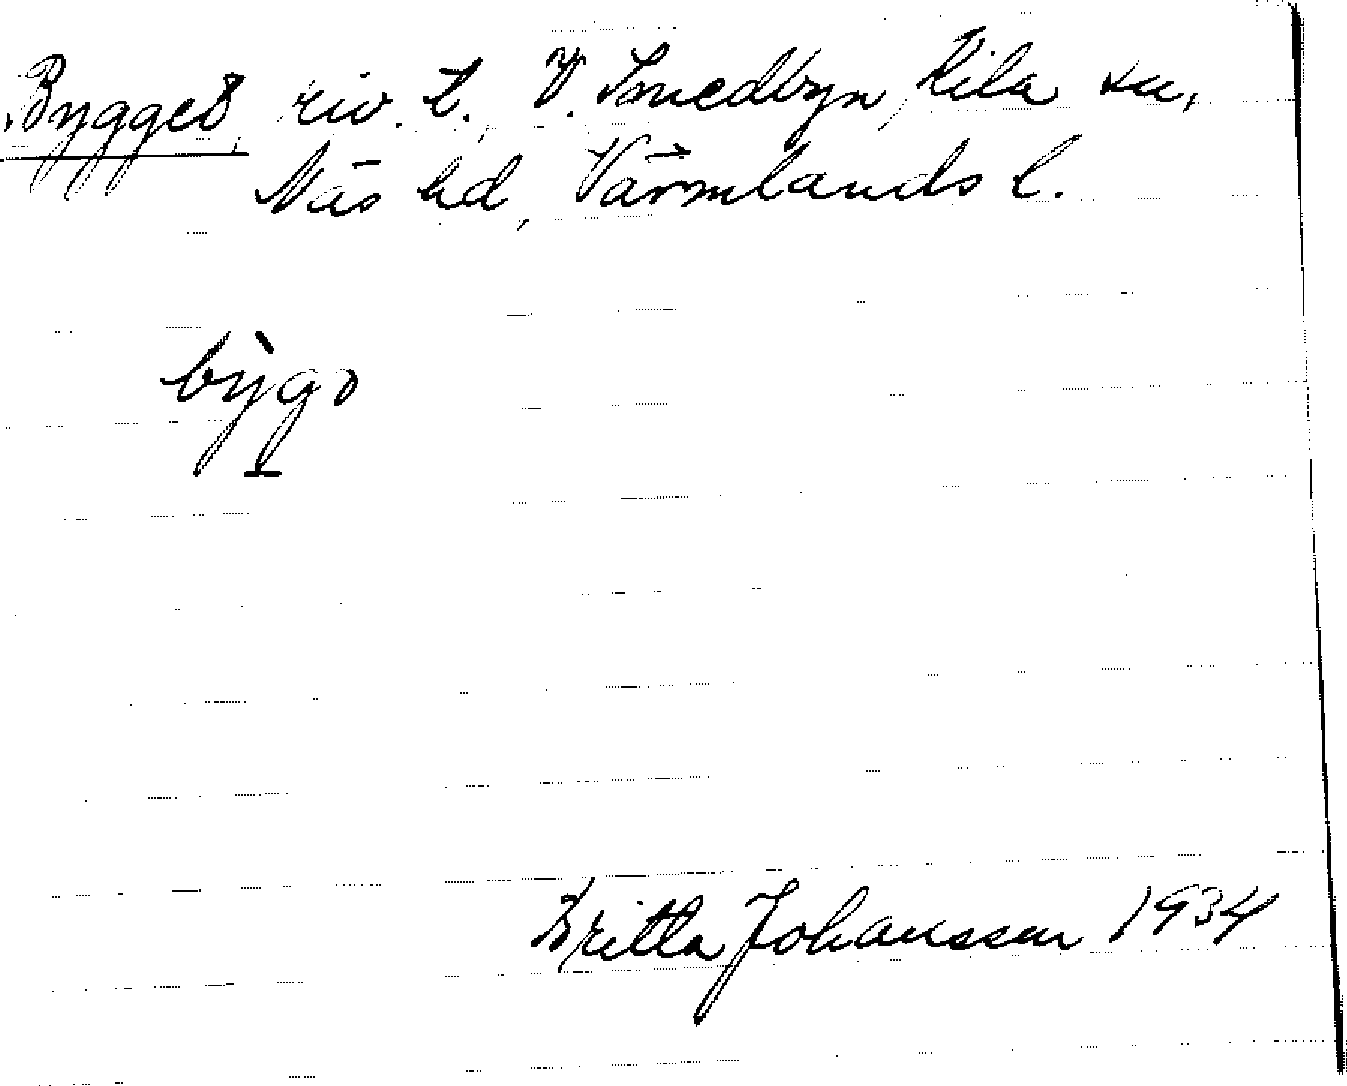 Bygget, riv. t., V. Smedbyn, Kila sn,
Näs hd, Värmlands l.
bỳgə
Britta Johansson 1934